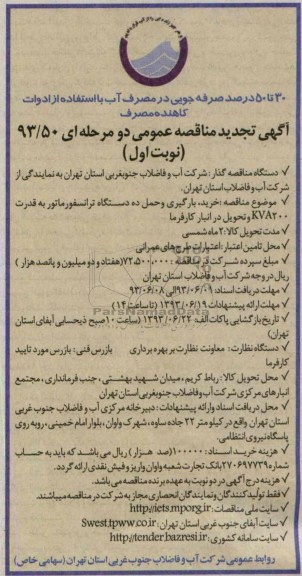 ۳۰ تا ۵۰ درصد صرفه جویی در مصرف آب با استفاده از ادوات
کاهنده مصرف
آگهی تجدید مناقصه عمومی دو مرحله ای ۹۳/۵۰
(نوبت اول)
✓ دستگاه مناقصه گذار : شرکت آب و فاضلاب جنوبغربی استان تهران به نمایندگی از
شرکت آب و فاضلاب استان تهران.
✓ موضوع مناقصه :خرید، بارگیری وحمل ده دستگاه ترانسفورماتور به قدرت
KVA۲۰۰ و تحویل در انبار کارفرما
✓ مدت تحویل کالا:۲ماه شمسی
✓ محل تامین اعتبار :اعتبارات طرح های عمرانی
✓ مبلغ سپرده شرکت در مناقصه : ۷۲،۵۰۰،۰۰۰(هفتاد و دو میلیون و پانصد هزار )
ریال در وجه شرکت آب و فاضلاب استان تهران
✓ مهلت دریافت اسناد: ۹۳/۰۶/۰۱ الی ۹۳/۰۶/۰۸
✓ مهلت ارائه پیشنهادات : ۱۳۹۳/۰۶/۱۹ (تا ساعت ۱۴)
✓ تاریخ بازگشایی پاکات الف: ۱۳۹۳/۰۶/۲۲ (ساعت ۱۰ صبح ذیحسابی آبفای استان
تهران)
✓ دستگاه نظارت: معاونت نظارت بر بهره برداری بازرس فنی: بازرس مورد تایید
کارفرما
✓ محل تحویل کالا: رباط کریم، میدان شهید بهشتی ، جنب فرمانداری ، مجتمع
انبارهای مرکزی شرکت آب و فاضلاب جنوبغربی استان تهران
✓ محل دریافت اسناد وارائه پیشنهادات : دبیرخانه مرکزی آب و فاضلاب جنوب غربی
استان تهران واقع در کیلو متر ۲۲ جاده ساوه، شهرک واوان، بلوار امام خمینی ، روبه روی
پاسگاه نیروی انتظامی.
✓ هزینه خرید اسناد: ۱۰۰۰۰۰(صد هزار) ریال می باشد که باید به حساب
شماره ۲۷۰۶۹۷۷۳۹ بانک تجارت شعبه واوان واریز و فیش نقدی ارائه گردد.
✓ هزینه درج آگهی در دو نوبت به عهده برنده مناقصه می باشد.
✓ فقط تولیدکنندگان و نمایندگان انحصاری مجاز به شرکت در مناقصه میباشند.
✓ سایت ملی مناقصات : http://iets.mporg.ir
✓ سایت آبفای جنوب غربی استان تهران : Swest.tpww.co.ir
✓ سایت سامانه کشوری: http://tender.bazresi.ir
روابط عمومی شرکت آب و فاضلاب جنوب غربی استان تهران (سهامی خاص)